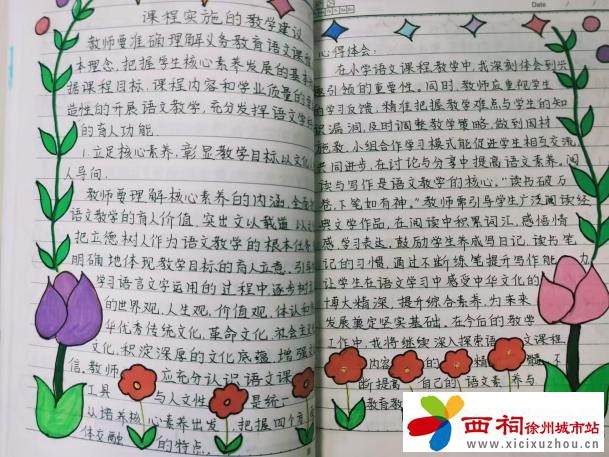 课程实施的教学建议
教师要准确理解义务教育语文课程
本理念,把握学生核心素养发展的基本
据课程目标,课程内容和学业质量的要
造性的开展语文教学,充分发挥语文学
的育人功能.
1.立足核心素养,彰显教学目标以文化
人导向.
教师要理解核心素养的内涵,全面
语文教学的育人价值,突出文以载道,以
把立德树人作为语文教学的根本任务
明确地体现教学目标的育人立意,引导
学习语言文字运用的过程中逐步树立
的世界观,人生观,价值观,体认和
华优秀传统文化,革命文化,社会主义
文化,积淀深厚的文化底蕴,增强文
信.教师 应充分认识语文课
工具 与人文性 是统一
从培养核心素养出发,把握四个方
体交融 的特点.
Date
心得体会:
在小学语文课程教学中,我深刻体会到兴
趣引领的重要性。同时,教师应重视学生
的学习反馈,精准把握教学难点与学生的知
识漏洞,及时调整教学策略,做到因材
施教,小组合作学习模式能促进学生相互交流
共同进步,在讨论与分享中提高语文素养。阅
读与写作是语文教学的核心。“读书破万
卷,下笔如有神。”教师需引导学生广泛阅读经
典文学作品,在阅读中积累词汇,感悟情
感,学习表达,鼓励学生养成写日记,读书笔
记的习惯,通过不断练笔提升写作能力
让学生在语文学习中感受中华文化的
博大精深,提升综合素养,为未来
发展奠定坚实基础。在今后的教学
工作中,我将继续深入探索语文课程
内容 的 精 髓,不
断提高 自己的 语文素养与
教育教
西祠徐州城市站
www.xicixuzhou.cn